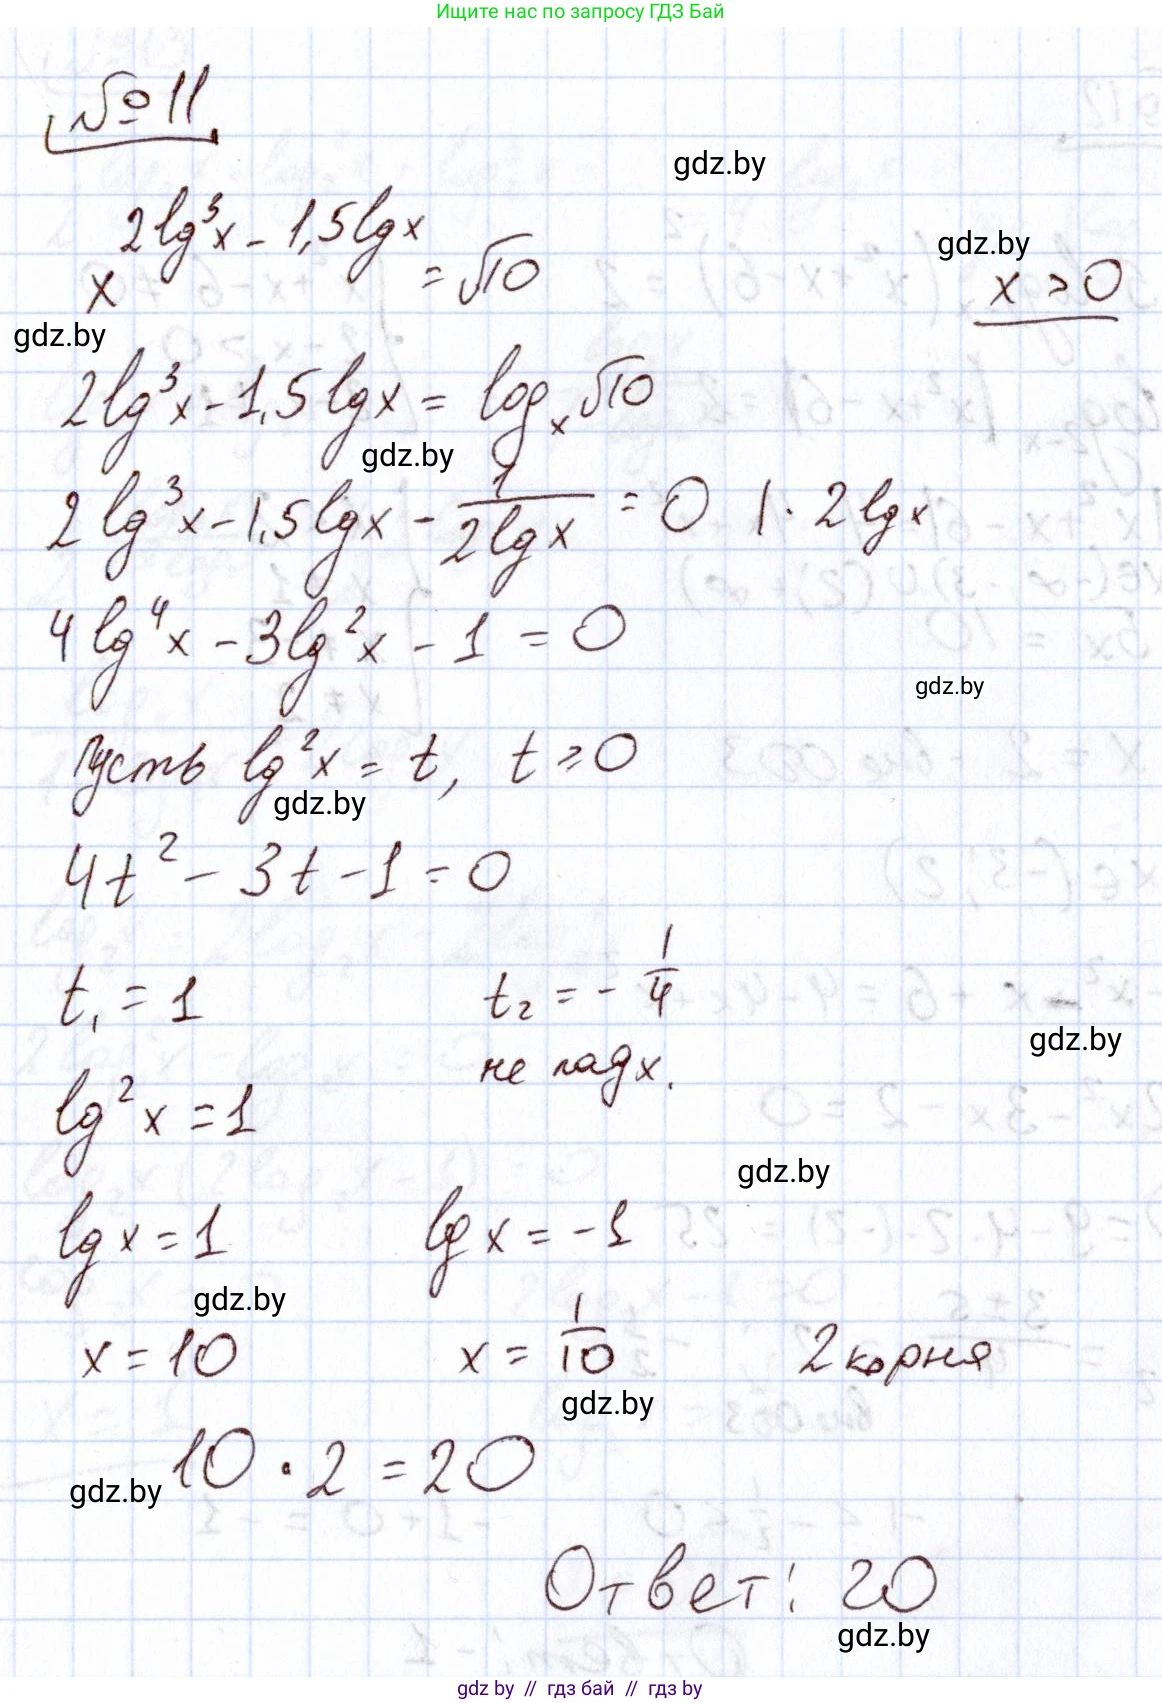 Ищите нас по запросу ГДЗ Бай
№ 11
gdz.by
x^(2lg³x - 1,5lgx) = √10
gdz.by
x > 0
gdz.by
2lg³x - 1,5lgx = logₓ√10
gdz.by
2lg³x - 1,5lgx - 1/(2lgx) = 0 | · 2lgx
4lg⁴x - 3lg²x - 1 = 0
gdz.by
Пусть lg²x = t, t ≥ 0
gdz.by
4t² - 3t - 1 = 0
t₁ = 1 t₂ = - 1/4
gdz.by
не подх.
lg²x = 1
gdz.by
lgx = 1 lgx = -1
gdz.by
x = 10 x = 1/10 2 корня
gdz.by
10 · 2 = 20
gdz.by
Ответ: 20
gdz.by
gdz by // гдз бай // гдз by